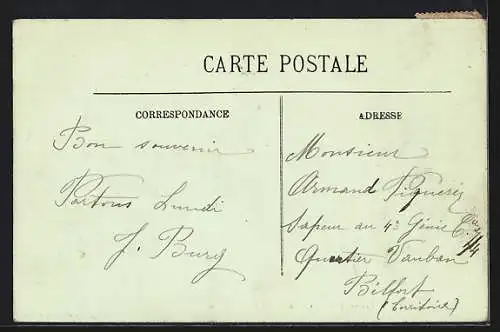 CARTE POSTALE
CORRESPONDANCE
ADRESSE
Bon souvenir
Partons Lundi
J. Bury
Monsieur
Armand Figuerez
Sapeur au 4e Génie Cie 7/4
Quartier Vauban
Bilfort
(Territoire)